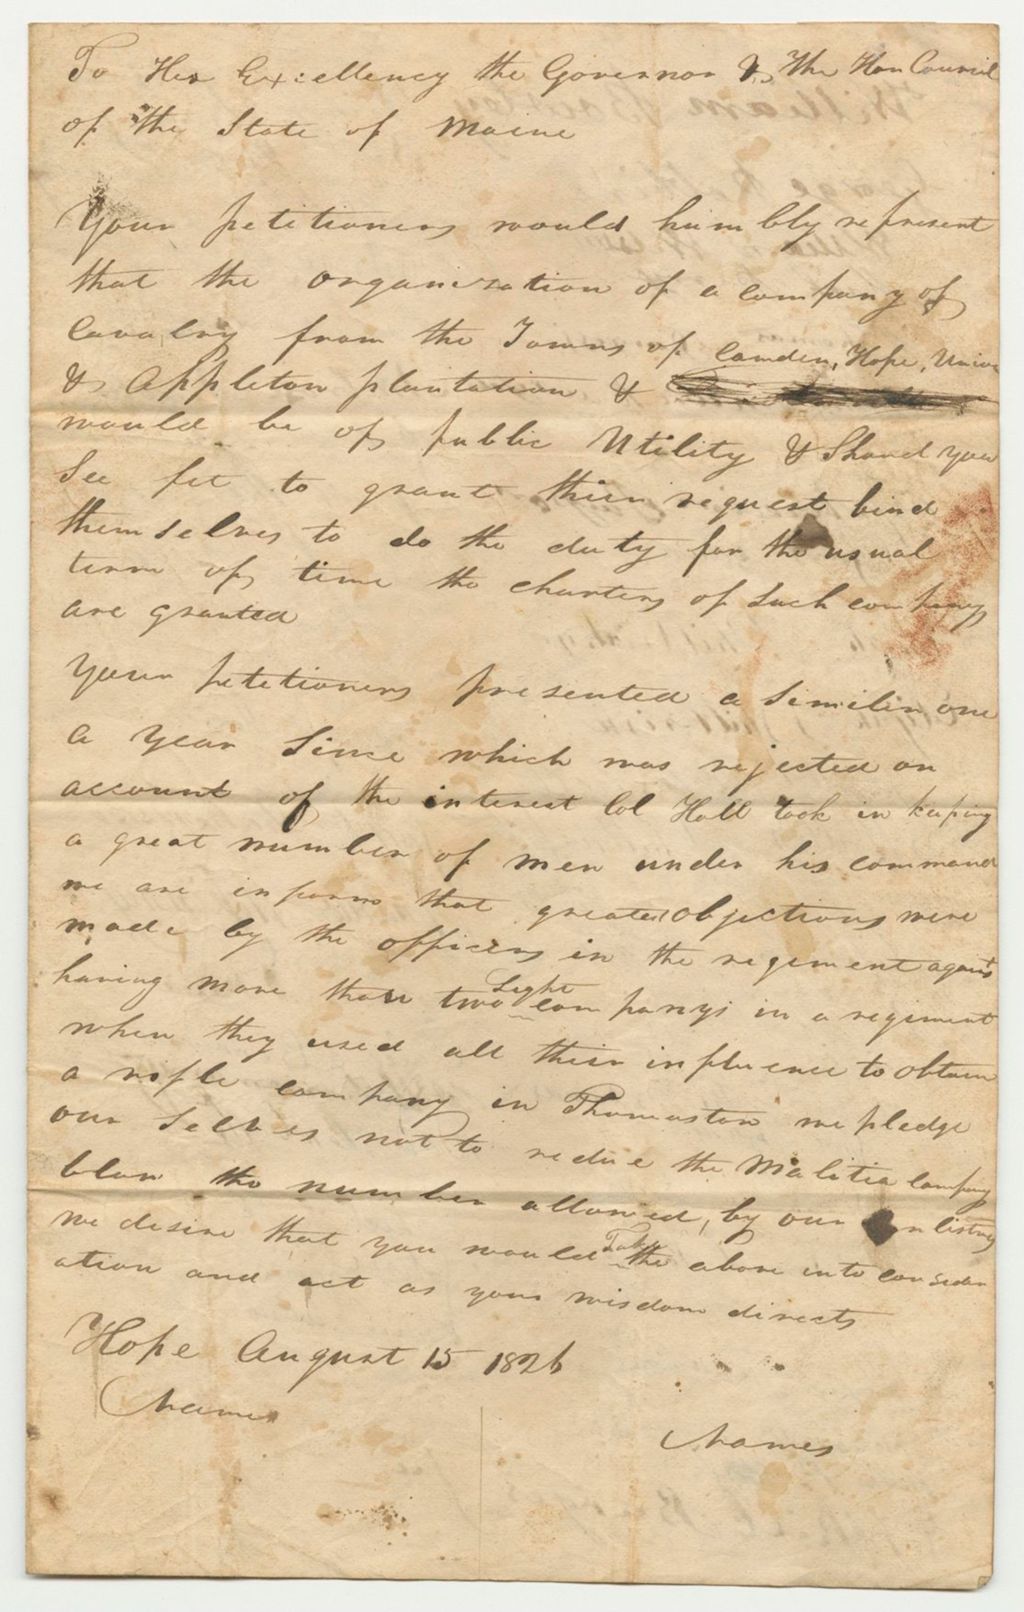 To His Excellency the Governor & The Hon Council
of the State of Maine
Your petitioners would humbly represent
that the organization of a company of
Cavalry from the Towns of Camden, Hope, Union
& Appleton plantation &
would be of public Utility & Shoud you
See fit to grant thier request bind
themselves to do the duty for the usual
term of time the charters of Such companys
are granted
Your petitioners presented a Similir one
a year Since which was rejected on
account of the interest Col Hall took in keeping
a great number of men under his command
we are inform that great objections were
made by the officers in the regement against
having more than two Light companys in a regiment
when they used all thier influence to obtain
a rifle company in Thomaston we pledge
our Selves not to reduce the Malitia company
blow the number allowed, by our enlistings
we desire that you would Take the above into consider
ation and act as your wisdom directs
Hope August 15 1826
Names
Names